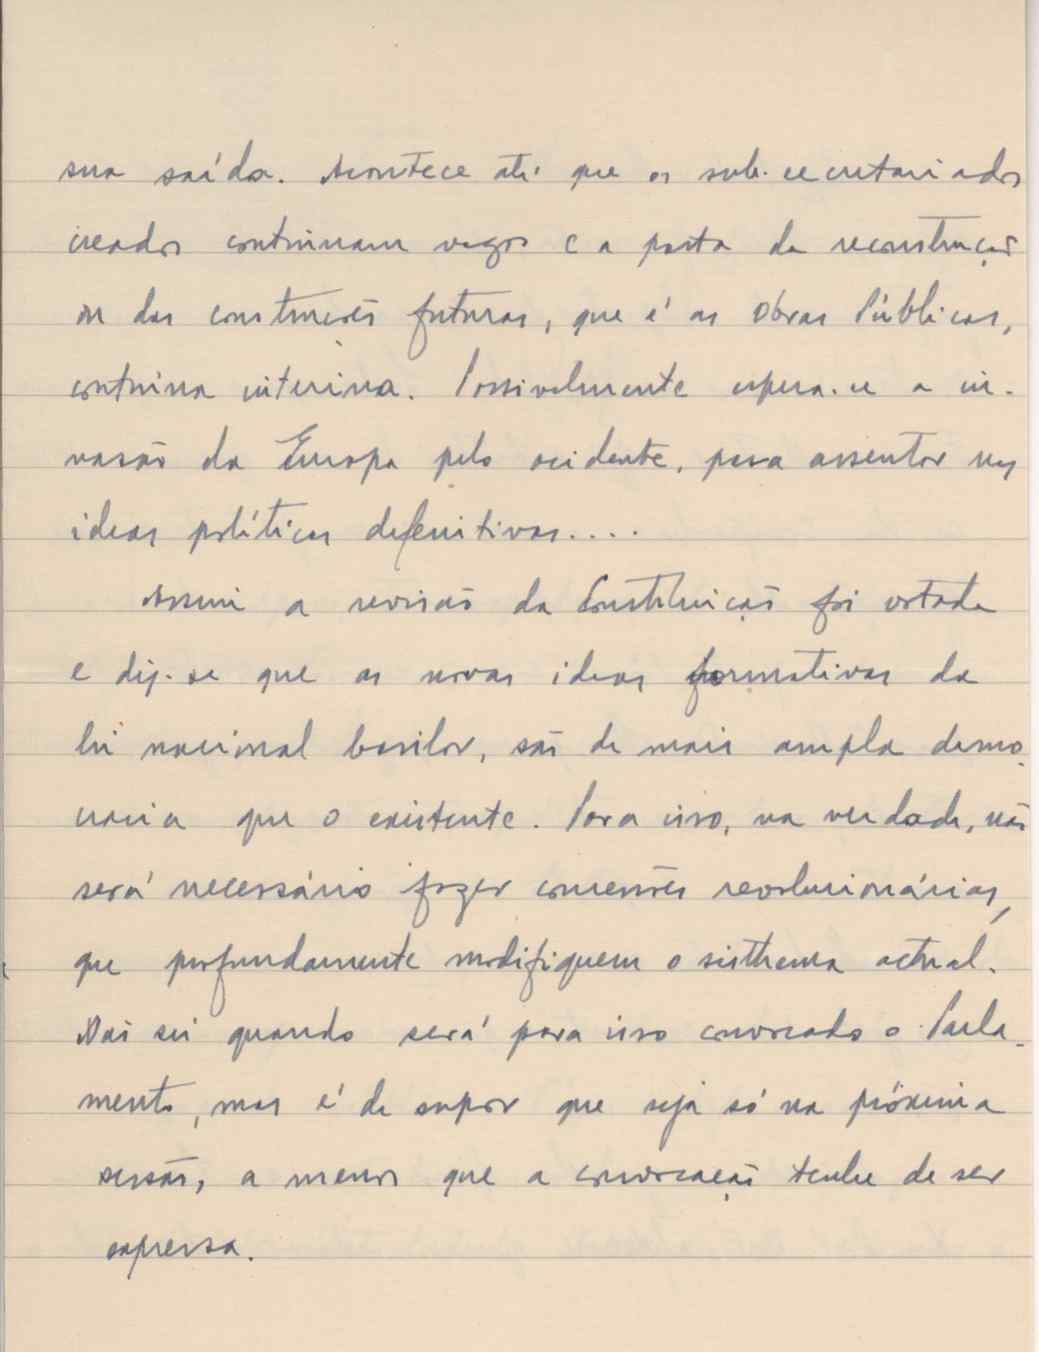 sua saída. Acontece até que os sub-secretariados
creados continuam vagos e a pasta da reconstrução
ou das construcões futuras, que é as Obras Públicas,
continua interina. Possivelmente espera-se a in-
vasão da Europa pelo ocidente, para assentar nas
ideas políticas defenitivas....
Assim a revisão da Constituição foi votada
e diz-se que as novas ideas formativas da
lei nacional basilar, são de mais ampla demo-
cracia que o existente. Para isso, na verdade, não
será necessário fazer concessões revolucionárias,
que profundamente modifiquem o sisthema actual.
Não sei quando será para isso convocado o Parla-
mento, mas é de supor que seja só na próxima
sessão, a menos que a convocação tenha de ser
expressa.